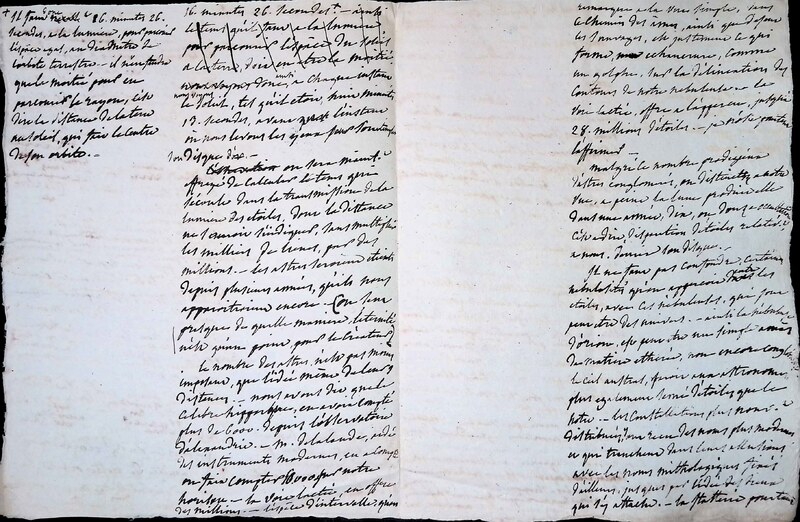 + il faut réelle.t 16. minutes 26.
secondes, a la lumiere, pour parcourir
l'espace egal, au diametre de
l'orbite terrestre - il n'en faudra
que la moitié pour en
parcourir le rayon, c'est a
dire la distance de la terre
au soleil, qui fait le centre
de son orbite. -
16 minutes 26. secondes + - ainsi
le tems qu'il faut a la lumiere
pour parcourir l'espace du soleil
a la terre, doit en etre la moitié
nous voyons donc, ainsi a chaque instant
le soleil, tel qu'il etoit, huit minutes
13. secondes, avant l'instant
où nous levons les yeux pour
son disque
on sera moins
effrayé de calculer le tems qui
s'écoule dans la transmission de la
lumiere des etoiles, dont la distance
ne sauroit s'indiquer, sans multiplier
les millions de lieues, par des
millions. - les astres seroient eteints
depuis plusieurs années, qu'ils nous
apparoitroient encore. - l'on sent
presque de quelle maniere, l'eternité
n'est qu'un point, pour le créateur
le nombre des astres, n'est pas moins
imposant, que l'idée même de leurs
distances. - nous avons dit que le
célebre hypparque, en avoit compté
plus de 6000. depuis l'observatoire
d'alexandrie. - m. de lalande, aidé
des instruments modernes, en a
fait compter 50000 sur notre
horison - la voie lactée, en offre
des millions. - l'espace d'intervalle, quon
remarque a la vue simple, dans
le chemin des ames, ainsi que disent
les sauvages, est justement ce qui
forme, cet enchancrure, comme
un golphe, sur la délinéation des
contours de notre nébuleuse - la
voie lactée, offre a l'apperçu, jusqu'a
28. millions d'étoiles. - je n'ose pourtant
l'affirmer. -
malgré le nombre prodigieux
d'astres conglomérés, ou distincts a notre
vue, a peine la lune produit elle
dans une année, dix, ou douze
c'est a dire, disparition d'étoiles relative.t
a nous, derriere son disque. -
Il ne faut pas confondre, certaines
nébulosités qu'on apperçoit entre les
etoiles, avec les nébuleuses, qui sont
peut etre des univers. - ainsi la nébuleuse
d'orion, est peut etre un simple amas
de matiere etherée, non encore conglomérée
le ciel austral, paroit aux astronomes
plus egalement semé d'étoiles que le
notre. - les constellations plus nouv.t
distribuées, ont reçu des noms plus modernes
ce qui tranchent dans leurs allusions
avec les noms mithologiques
d'ailleurs, jusques par l'idée des dieux
qui s'y attache. - la flatterie pourtant